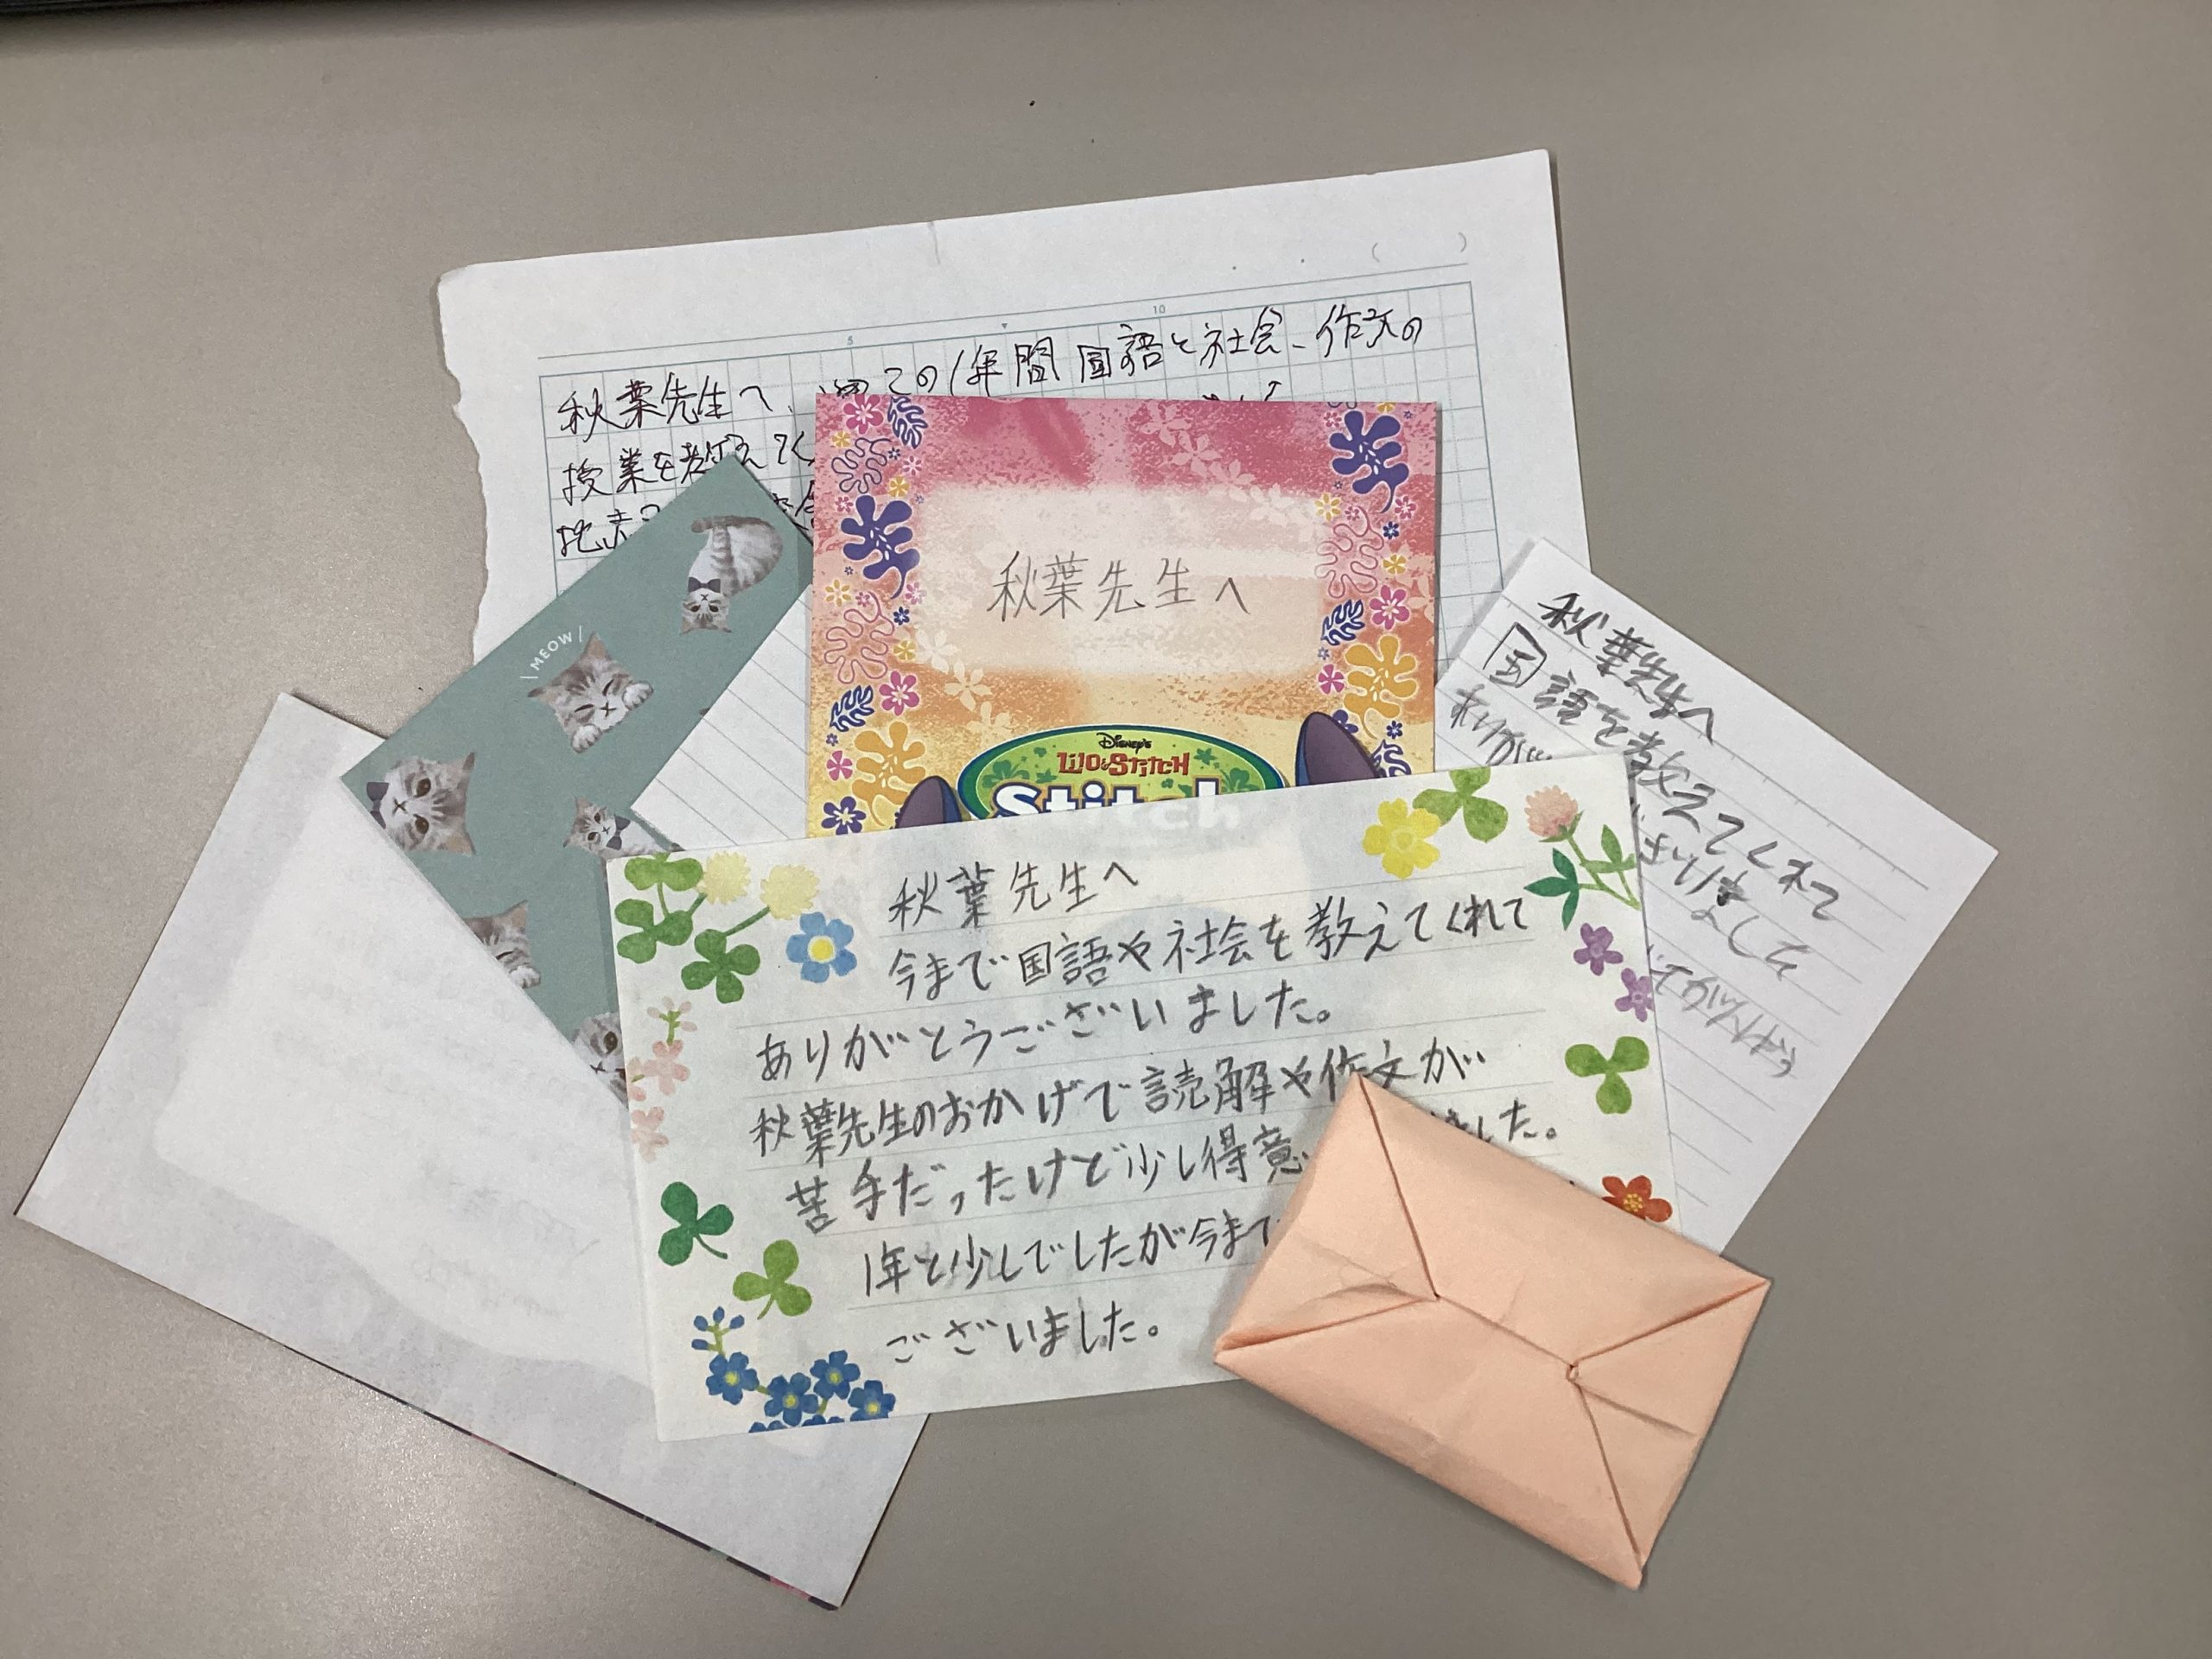 ( )
5 10
秋葉先生へ、 この1年間国語と社会、作文の
授業を教えてく
MEOW
秋葉先生へ
Disney's
LILO & STITCH
Stitch
秋葉先生へ
国語を教えてくれて
ありがと ざいました
秋葉先生へ
今まで国語や社会を教えてくれて
ありがとうございました。
秋葉先生のおかげで読解や作文が
苦手だったけど少し得意 ました。
1年と少しでしたが今まで
ございました。